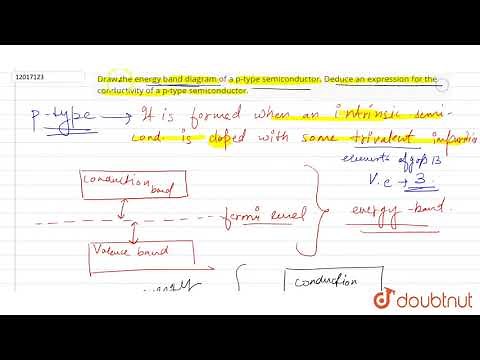 12017123
Draw the energy band diagram of a p-type semiconductor. Deduce an expression for the
conductivity of a p-type semiconductor.
p-type → It is formed when an intrinsic semi-
cond. is doped with some trivalent
elements of 13
V.e → 3.
conduction band
fermi level
energy-band.
Valence band
conduction
doubtnut